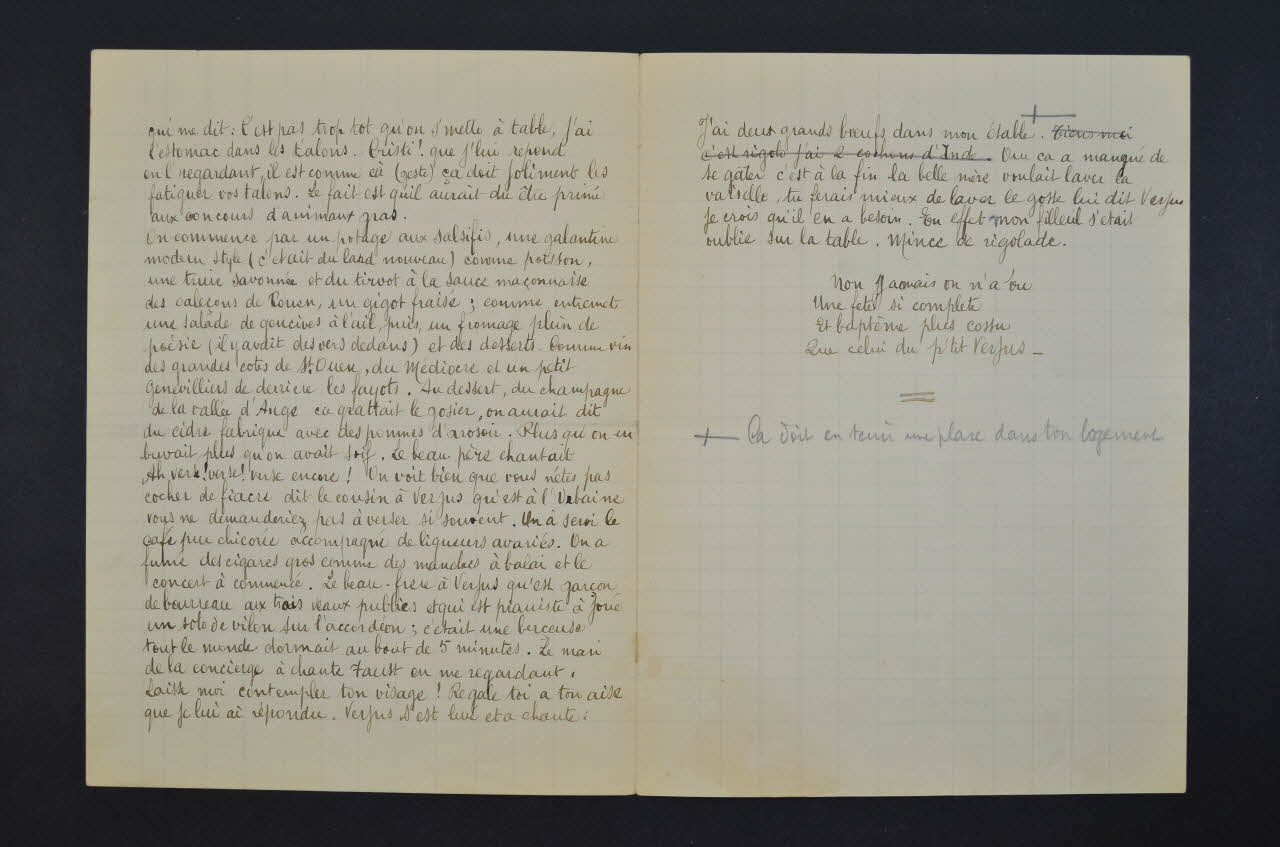 qui me dit : C'est pas trop tot qu'on s'mette à table, j'ai
l'estomac dans les talons. Cristi ! que j'lui repond
en l'regardant, il est comme cà (geste) ça doit joliment les
fatiguer vos talons. Le fait est qu'il aurait du être primé
aux concours d'animaux gras.
On commence par un potage aux salsifis, une galantine
modern style (c'etait du lard nouveau) comme poisson,
une truie savonnée et du tirvot à la sauce maçonnaise
des caleçons de Rouen, un gigot fraisé ; comme entremets
une salade de gencives à l'ail, puis, un fromage plein de
poésie (il y avait des vers dedans) et des desserts. Comme vin
des grandes cotes de St. Ouen, du Médiocre et un petit
Genevilliers de derriere les fayots. Au dessert, du champagne
de la vallée d'Auge ca grattait le gosier, on aurait dit
du cidre fabriqué avec des pommes d'arosoir. Plus qu'on en
buvait plus qu'on avait soif. Le beau père chantait
Ah verse ! verse ! verse encore ! On voit bien que vous n'êtes pas
cocher de fiacre dit le cousin à Verjus qu'est à l'Urbaine
vous ne demanderiez pas à verser si souvent. On à servi le
café pur chicorée accompagné de liqueurs avariés. On a
fumé des cigares gros comme des manches à balai et le
concert à commencé. Le beau-frere à Verjus qu'est garçon
de bourreau aux trois veaux publics et qui est pianiste à joué
un solo de vilon sur l'accordéon ; c'était une berceuse
tout le monde dormait au bout de 5 minutes. Le mari
de la concierge à chanté Faust en me regardant.
Laisse moi contempler ton visage ! Regale toi a ton aise
que je lui ai répondu. Verjus s'est levé et a chanté :
J'ai deux grands bœufs dans mon étable. Tiens moi
c'est rigolo j'ai 2 cochons d'Inde. Ou ca a manqué de
se gâter c'est à la fin la belle mère voulait laver la
vaisselle, tu ferais mieux de laver le gosse lui dit Verjus
je crois qu'il en a besoin. En effet mon filleul s'etait
oublié sur la table. Mince de rigolade.
Non Jamais on n'a vu
Une fete si complete
Et baptème plus cossu
Que celui du p'tit Verjus _
+ Ca doit en tenir une place dans ton logement